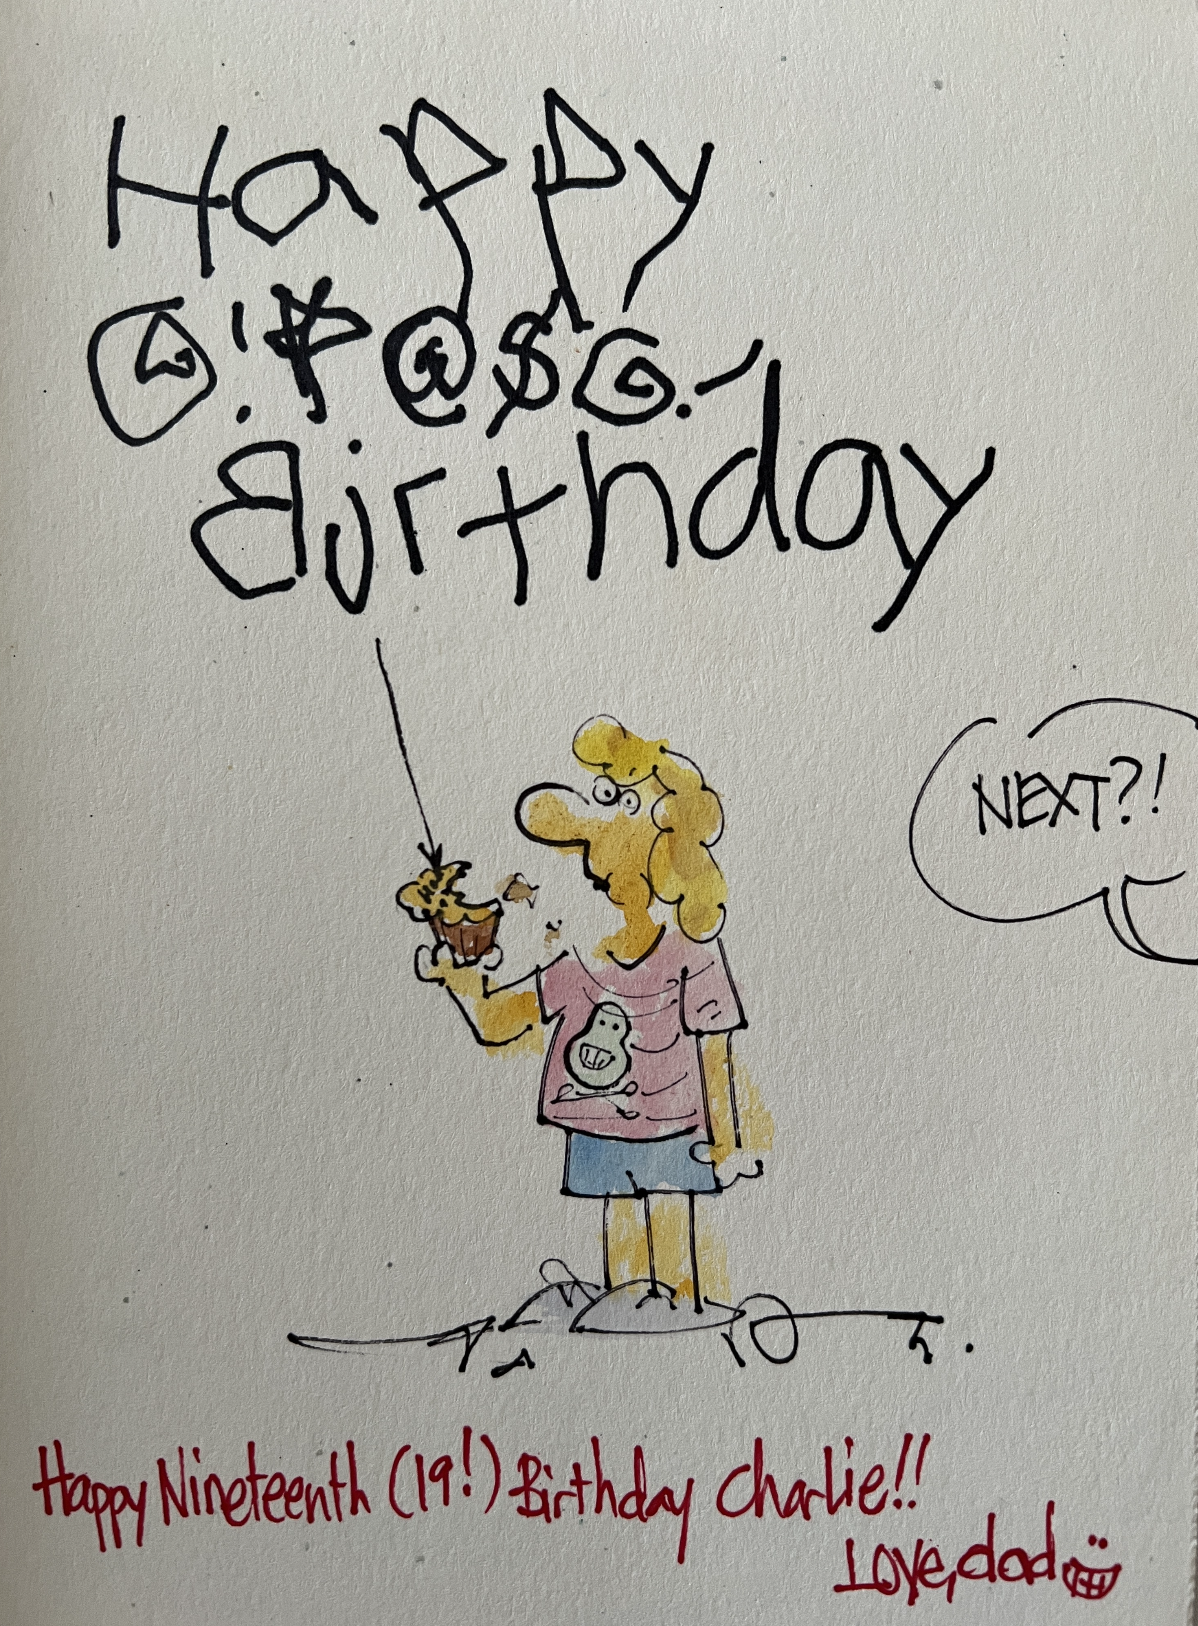 Happy
@!*@$@!
Birthday
NEXT?!
Happy Nineteenth (19!) Birthday Charlie!!
Love, dad